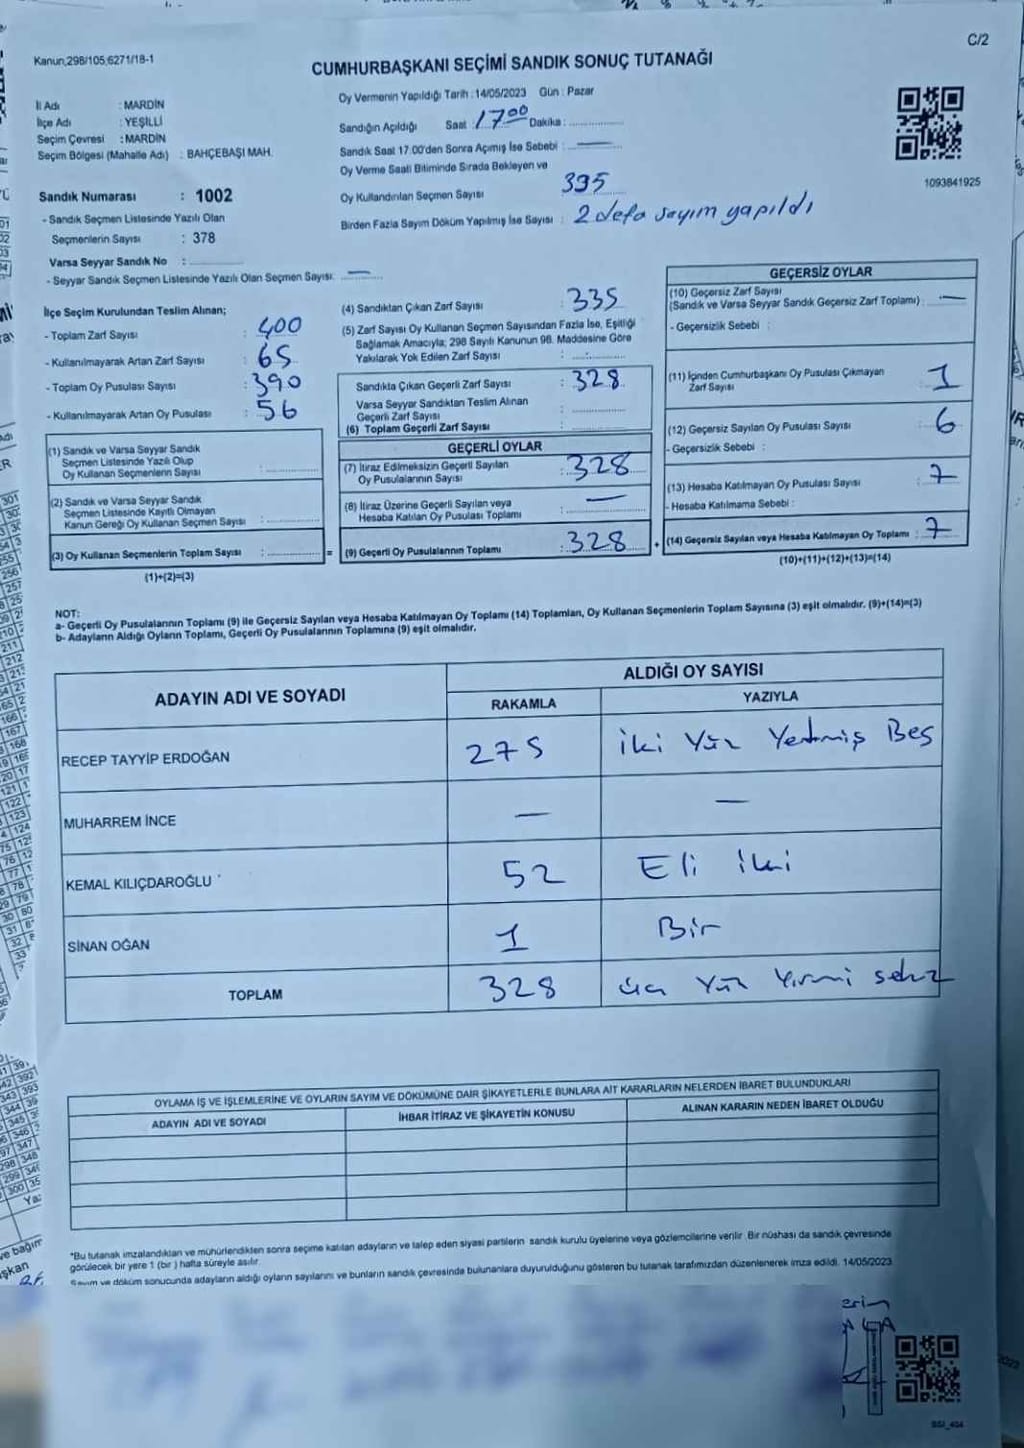 C/2
Kanun,298/105,6271/18-1
CUMHURBAŞKANI SEÇİMİ SANDIK SONUÇ TUTANAĞI
İl Adı : MARDİN
İlçe Adı : YEŞİLLİ
Seçim Çevresi : MARDİN
Seçim Bölgesi (Mahalle Adı) : BAHÇEBAŞI MAH.
Oy Vermenin Yapıldığı Tarih : 14/05/2023 Gün : Pazar
Sandığın Açıldığı Saat : 17 00 Dakika :
Sandık Saat 17.00'den Sonra Açımış İse Sebebi : —
Oy Verme Saati Bitiminde Sırada Bekleyen ve
Oy Kullandırılan Seçmen Sayısı 395
Birden Fazla Sayım Döküm Yapılmış İse Sayısı : 2 defa sayım yapıldı
1093841925
Sandık Numarası : 1002
- Sandık Seçmen Listesinde Yazılı Olan
Seçmenlerin Sayısı : 378
Varsa Seyyar Sandık No :
- Seyyar Sandık Seçmen Listesinde Yazılı Olan Seçmen Sayısı: —
İlçe Seçim Kurulundan Teslim Alınan;
- Toplam Zarf Sayısı : 400
- Kullanılmayarak Artan Zarf Sayısı : 65
- Toplam Oy Pusulası Sayısı : 390
- Kullanılmayarak Artan Oy Pusulası : 56
(1) Sandık ve Varsa Seyyar Sandık
Seçmen Listesinde Yazılı Olup
Oy Kullanan Seçmenlerin Sayısı :
(2) Sandık ve Varsa Seyyar Sandık
Seçmen Listesinde Kayıtlı Olmayan
Kanun Gereği Oy Kullanan Seçmen Sayısı :
(3) Oy Kullanan Seçmenlerin Toplam Sayısı : =
(1)+(2)=(3)
(4) Sandıktan Çıkan Zarf Sayısı : 335
(5) Zarf Sayısı Oy Kullanan Seçmen Sayısından Fazla İse, Eşitliği
Sağlamak Amacıyla; 298 Sayılı Kanunun 98. Maddesine Göre
Yakılarak Yok Edilen Zarf Sayısı :
Sandıkta Çıkan Geçerli Zarf Sayısı : 328
Varsa Seyyar Sandıktan Teslim Alınan
Geçerli Zarf Sayısı :
(6) Toplam Geçerli Zarf Sayısı :
GEÇERLİ OYLAR
(7) İtiraz Edilmeksizin Geçerli Sayılan
Oy Pusulalarının Sayısı : 328
(8) İtiraz Üzerine Geçerli Sayılan veya
Hesaba Katılan Oy Pusulası Toplamı : —
(9) Geçerli Oy Pusulalarının Toplamı : 328 +
GEÇERSİZ OYLAR
(10) Geçersiz Zarf Sayısı
(Sandık ve Varsa Seyyar Sandık Geçersiz Zarf Toplamı) : —
- Geçersizlik Sebebi :
(11) İçinden Cumhurbaşkanı Oy Pusulası Çıkmayan
Zarf Sayısı : 1
(12) Geçersiz Sayılan Oy Pusulası Sayısı : 6
- Geçersizlik Sebebi :
(13) Hesaba Katılmayan Oy Pusulası Sayısı : 7
- Hesaba Katılmama Sebebi :
(14) Geçersiz Sayılan veya Hesaba Katılmayan Oy Toplamı : 7
(10)+(11)+(12)+(13)=(14)
NOT:
a- Geçerli Oy Pusulalarının Toplamı (9) ile Geçersiz Sayılan veya Hesaba Katılmayan Oy Toplamı (14) Toplamları, Oy Kullanan Seçmenlerin Toplam Sayısına (3) eşit olmalıdır. (9)+(14)=(3)
b- Adayların Aldığı Oyların Toplamı, Geçerli Oy Pusulalarının Toplamına (9) eşit olmalıdır.
ADAYIN ADI VE SOYADI ALDIĞI OY SAYISI
RAKAMLA YAZIYLA
RECEP TAYYİP ERDOĞAN 275 iki Yüz Yetmiş Beş
MUHARREM İNCE — —
KEMAL KILIÇDAROĞLU 52 Eli iki
SİNAN OĞAN 1 Bir
TOPLAM 328 üç Yüz Yirmi sekiz
OYLAMA İŞ VE İŞLEMLERİNE VE OYLARIN SAYIM VE DÖKÜMÜNE DAİR ŞİKAYETLERLE BUNLARA AİT KARARLARIN NELERDEN İBARET BULUNDUKLARI
ADAYIN ADI VE SOYADI İHBAR İTİRAZ VE ŞİKAYETİN KONUSU ALINAN KARARIN NEDEN İBARET OLDUĞU
*Bu tutanak imzalandıktan ve mühürlendikten sonra seçime katılan adayların ve talep eden siyasi partilerin sandık kurulu üyelerine veya gözlemcilerine verilir. Bir nüshası da sandık çevresinde
görülecek bir yere 1 (bir) hafta süreyle asılır.
Sayım ve döküm sonucunda adayların aldığı oyların sayılarını ve bunların sandık çevresinde bulunanlara duyurulduğunu gösteren bu tutanak tarafımızdan düzenlenerek imza edildi. 14/05/2023